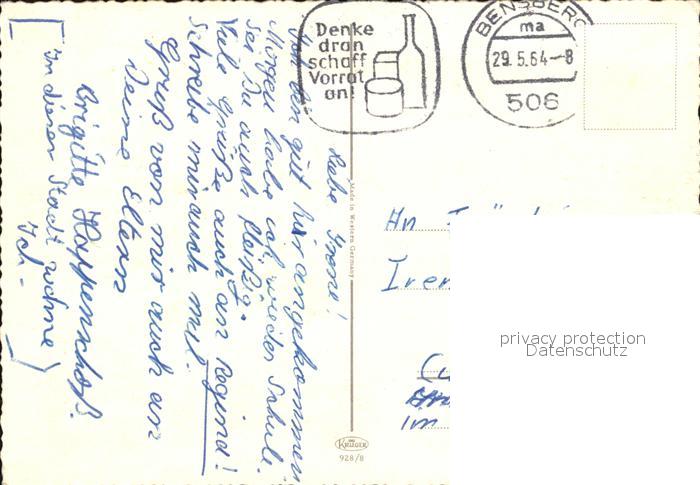 Denke
dran
schaff
Vorrat
an!
BENSBERG
ma
29.5.64-8
506
Liebe Irene!
Ich bin gut hier angekommen.
Morgen habe ich wieder Schule.
Sei Du auch fleißig.
Viele Grüße auch an Regina!
Schreibe mir auch mal.
Gruß von mir auch an
Deine Eltern
Brigitte
[In dieser Stadt wohne
Ich-]
Made in Western Germany
An
Iren
im
KRÜGER
928/8
privacy protection
Datenschutz